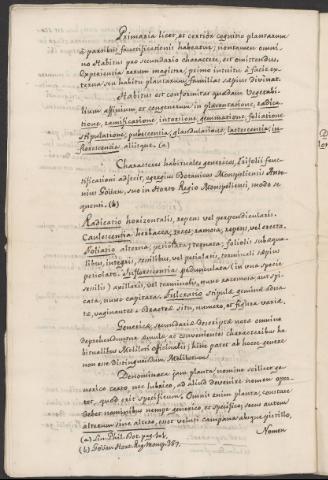 Primaria licet, et certior cognitio plantarum
a partibus fructificationis habeatur; non tamen omni-
no Habitus pro secundario charactere, est omittendus,
Experientia rerum magistra; primo intuitu a facie ex-
terna seu habitu plantarum familias saepius divinat.
Habitus est conformitas quaedam Vegetabi-
lium affinium, et congenerum in placentatione, radica-
tione, ramificatione, intorsione, gemmatione, foliatione
stipulatione, pubescentia, glandulatione, lactescentia, in-
florescentia aliisque. (a)
Characteres habituales genericos,
fructificationi adjecit, egregius Botanicus Monspeliensis Anto-
nius Goüan, suo in Horto Regio Monspeliensi, modo se-
quenti. (b)
Radicatio horizontalis, repens vel perpendicularis.
Caulescentia herbacea, teres, ramosa, repens, vel erecta.
Foliatio alterna, petiolata, ternata; foliolis subaequa-
libus, integris, sessilibus, vel petiolatis, terminali saepius
petiolato. Inflorescentia pedunculata (in una specie
sessilis) axillaris, vel terminalis, nunc racemosa, aut spi-
cata, nunc capitata. Fulcratio stipulae geminae
vaginantes. Bracteae situ, numero, et figura variae.
Genericae secundariae descriptae notae omnino
deprehenduntur convenientes characteribus ha-
bitualibus Meliloti officinalis; hinc patet ab hocce genere
non esse distinguendum Melilotum
Denominata jam planta, nomine scilicet ge-
nerico certo, nec lubrico, ad aliud devenire nomen opor-
tet, quod erit specificum. Omnis enim planta, constare
debet nominibus nempe generico, et specifico; secus autem
alterum sine altero, esset veluti campana absque pistillo,
(a) Lin. Phil. Bot. pag.
(b) Goüan Hort. Reg. Monsp. 387.
Nomen